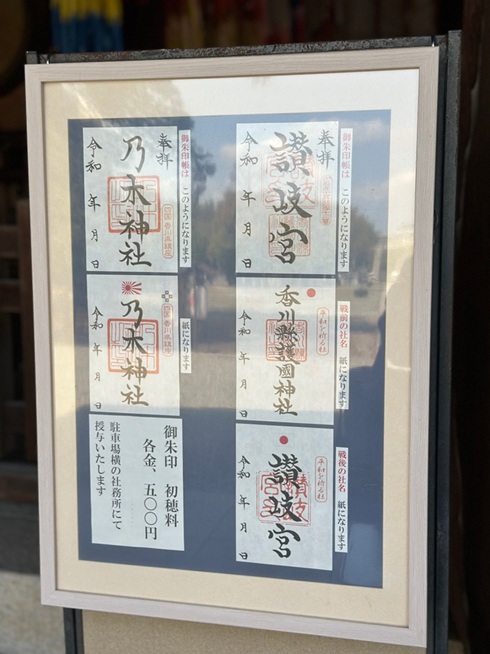 御朱印帳は このようになります
奉拝
讃岐宮
令和 年 月 日
戦前の社名 紙になります
平和を祈る社
香川縣護國神社
令和 年 月 日
戦後の社名 紙になります
平和を祈る社
讃岐宮
令和 年 月 日
御朱印帳は このようになります
奉拝
乃木神社
令和 年 月 日
紙になります
乃木神社
令和 年 月 日
御朱印 初穂料
各金、五〇〇円
駐車場横の社務所にて
授与いたします